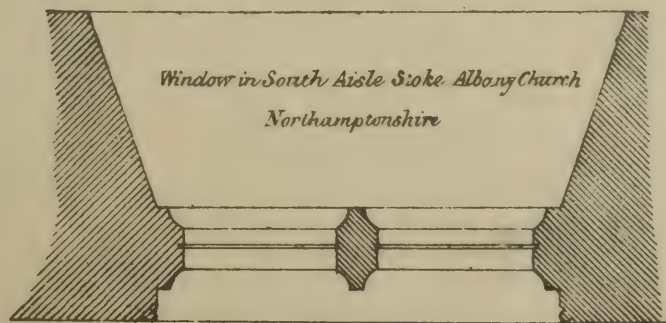 Window in South Aisle Stoke Albany Church
Northamptonshire